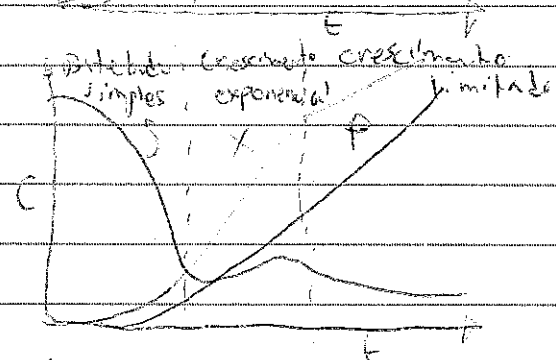 t
Batelada Crescimento crescimento
simples exponencial limitado
S X P
C
t